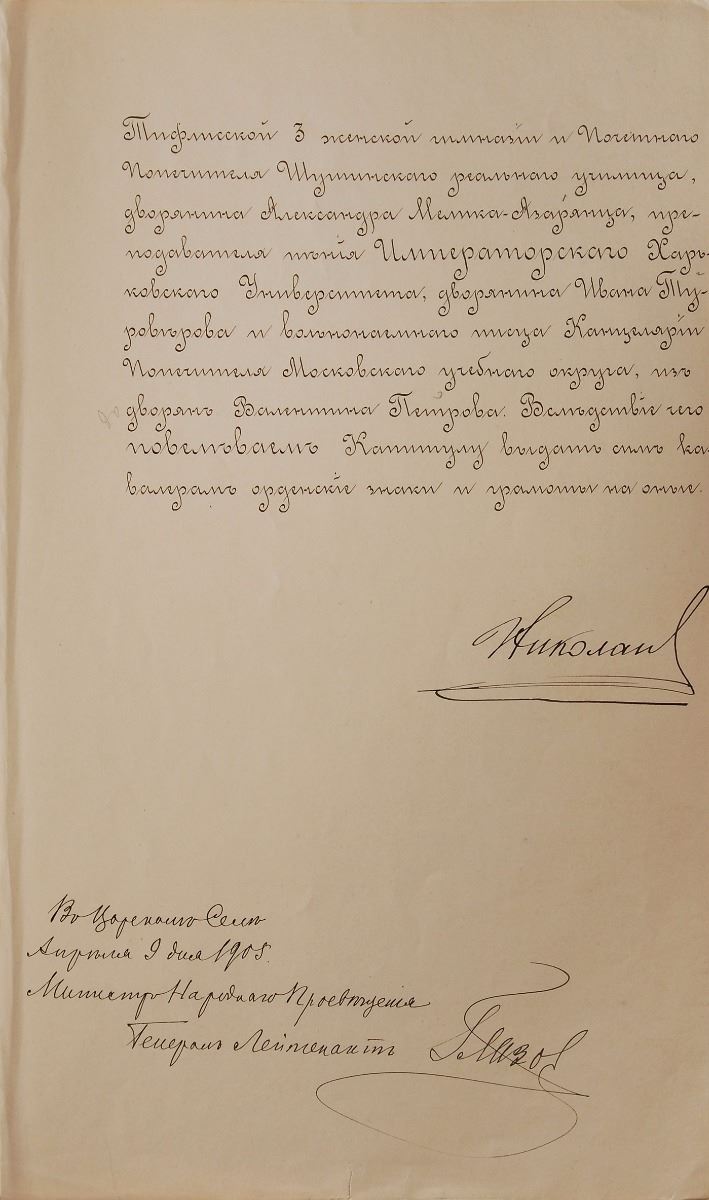 Тифлисской 3 женской гимназіи и Почетнаго
Попечителя Шушинскаго реальнаго училища,
дворянина Александра Мелика-Азарянца, пре-
подавателя пѣнія Императорскаго Харь-
ковскаго Университета, дворянина Ивана Ту-
ровѣрова и вольнонаемнаго писца Канцеляріи
Попечителя Московскаго учебнаго округа, изъ
дворянъ Валентина Петрова. Вслѣдствіе чего
повелѣваемъ Капитулу выдать симъ ка-
валерамъ орденскіе знаки и грамоты на оные.
Николай
Въ Царскомъ Селѣ
Апрѣля 9 дня 1905.
Министръ Народнаго Просвѣщенія
Генералъ Лейтенантъ Глазов